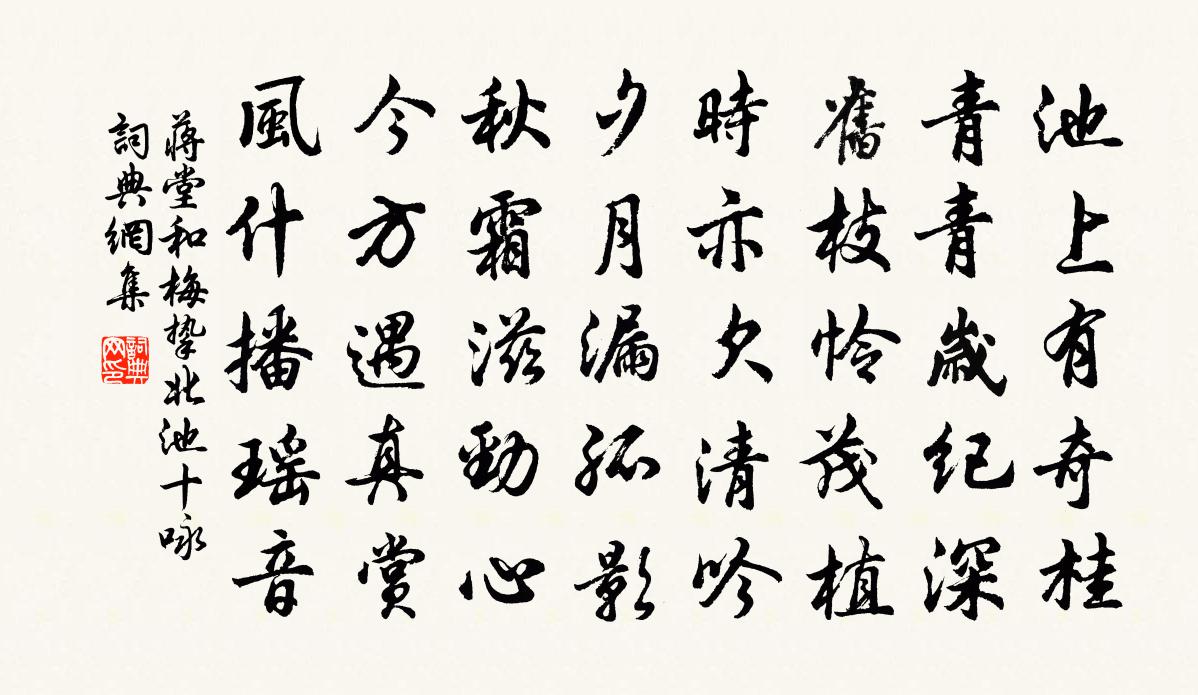 池上有奇桂
青青歲紀深
舊枝怜茂植
時亦欠清吟
夕月漏孤影
秋霜滋勁心
今方遇真賞
風什播瑶音
蔣堂和梅摯北池十咏
詞典網集
詞典網印